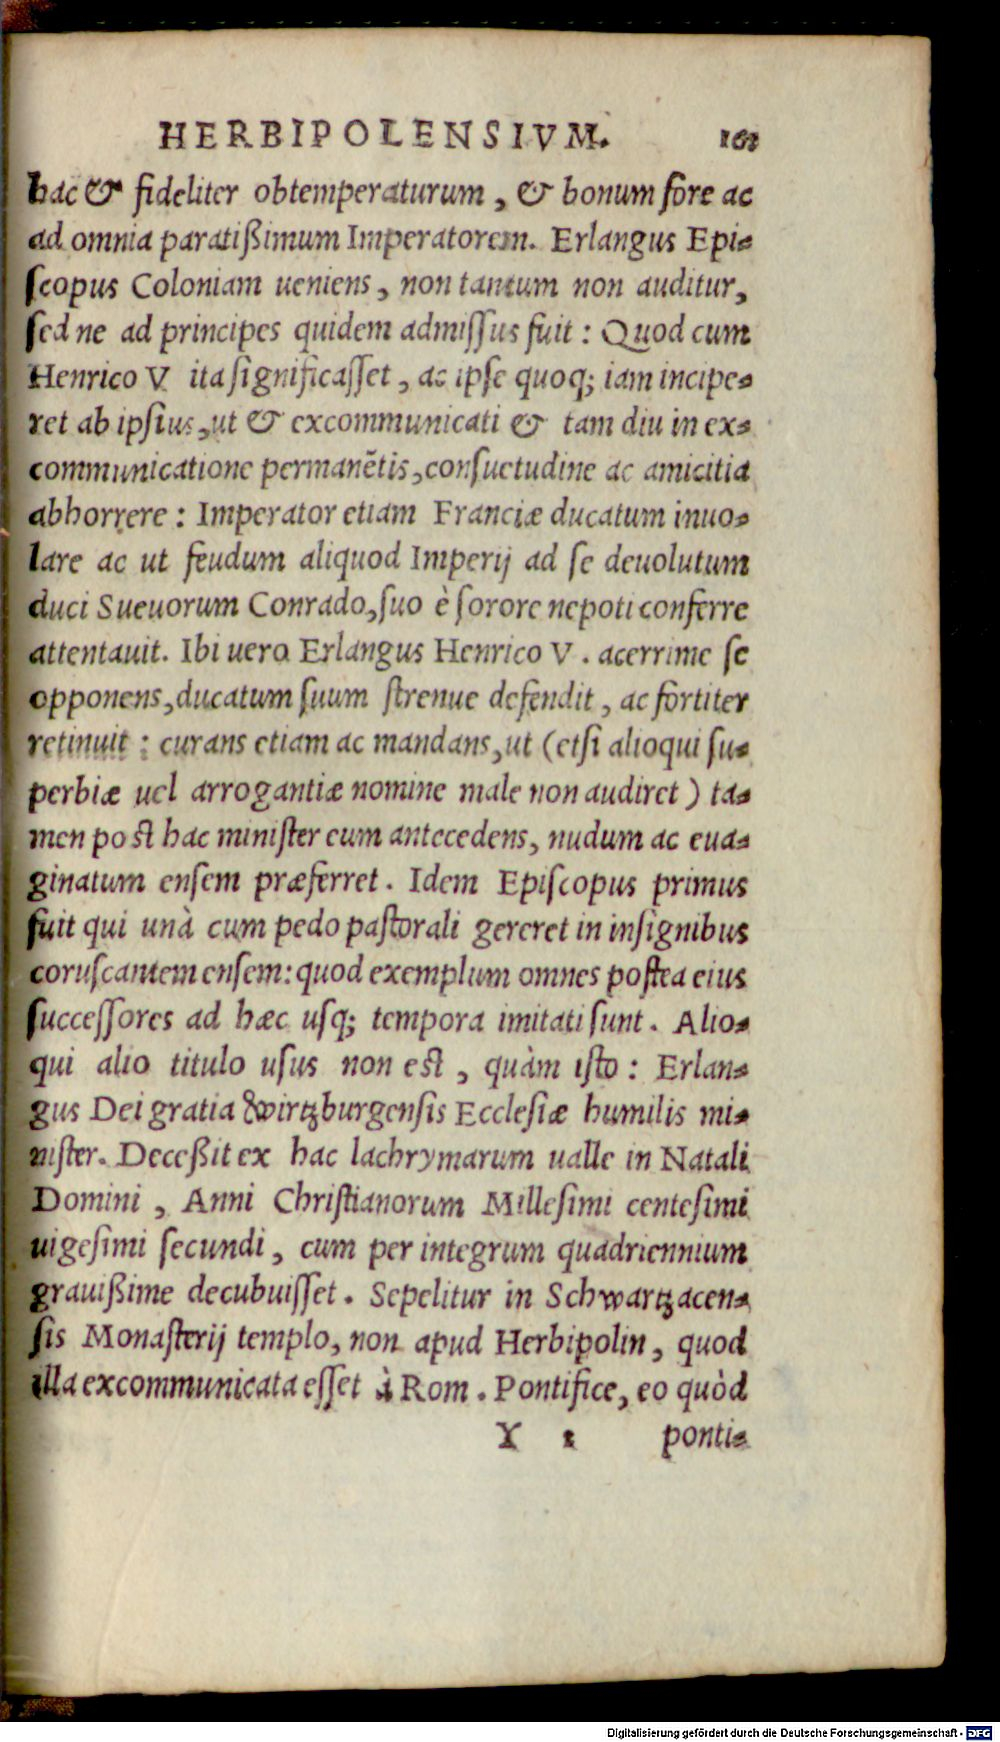 HERBIPOLENSIVM. 161
hac & fideliter obtemperaturum, & bonum fore ac
ad omnia paratißimum Imperatorem. Erlangus Epi-
ſcopus Coloniam ueniens, non tantum non auditur,
ſed ne ad principes quidem admiſſus fuit: Quod cum
Henrico V ita ſignificaſſet, ac ipſe quoq; iam incipe-
ret ab ipſius, ut & excommunicati & tam diu in ex-
communicatione permanẽtis, conſuetudine ac amicitia
abhorrere: Imperator etiam Franciæ ducatum inuo-
lare ac ut feudum aliquod Imperij ad ſe deuolutum
duci Sueuorum Conrado, ſuo è ſorore nepoti conferre
attentauit. Ibi uero Erlangus Henrico V. acerrime ſe
opponens, ducatum ſuum ſtrenue defendit, ac fortiter
retinuit: curans etiam ac mandans, ut (etſi alioqui ſu-
perbiæ uel arrogantiæ nomine male non audiret) ta-
men poſt hac miniſter eum antecedens, nudum ac eua-
ginatum enſem præferret. Idem Epiſcopus primus
fuit qui unà cum pedo paſtorali gereret in inſignibus
coruſcantem enſem: quod exemplum omnes poſtea eius
ſucceſſores ad hæc uſq; tempora imitati ſunt. Alio-
qui alio titulo uſus non eſt, quàm iſto: Erlan-
gus Dei gratia Wirtzburgenſis Eccleſiæ humilis mi-
niſter. Deceßit ex hac lachrymarum ualle in Natali
Domini, Anni Chriſtianorum Milleſimi centeſimi
uigeſimi ſecundi, cum per integrum quadriennium
grauißime decubuiſſet. Sepelitur in Schwartzacen-
ſis Monaſterij templo, non apud Herbipolin, quod
illa excommunicata eſſet à Rom. Pontifice, eo quòd
X 1 ponti-
Digitalisierung gefördert durch die Deutsche Forschungsgemeinschaft - DFG